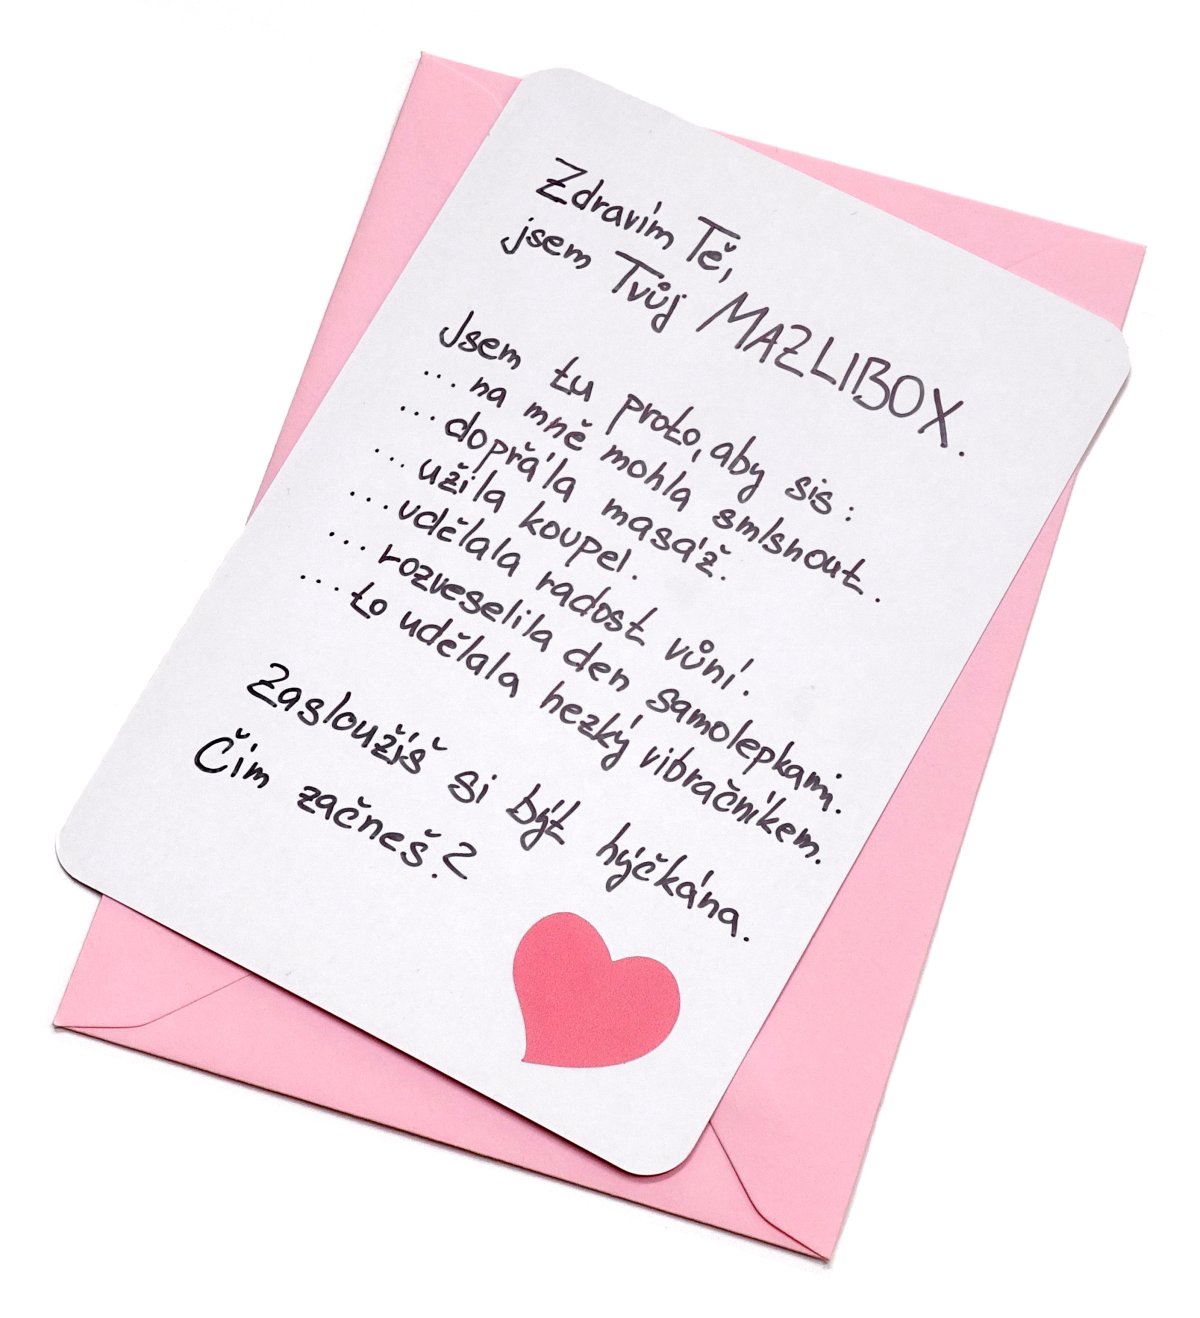 Zdravím Tě,
jsem Tvůj MAZLIBOX.
Jsem tu proto, aby sis:
...na mně mohla smlsnout.
...dopřála masáž.
...užila koupel.
...udělala radost vůní.
...rozveselila den samolepkami.
...to udělala hezký vibračníkem.
Zasloužíš si být hýčkána.
Čím začneš?